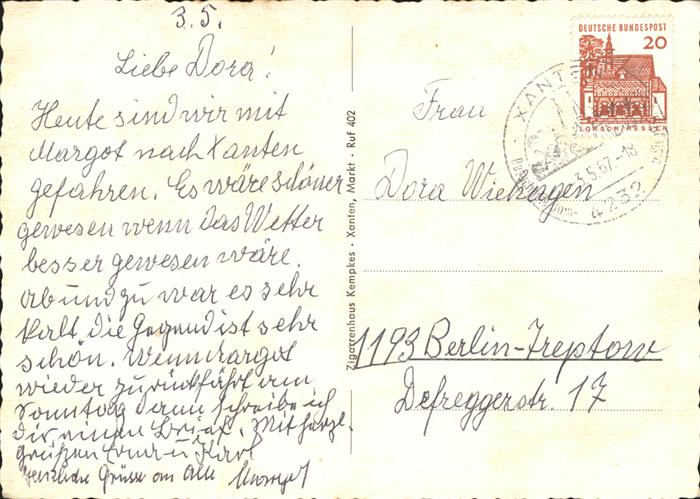 3.5.
Liebe Dora!
Heute sind wir mit
Margot nach Xanten
gefahren. Es wäre schöner
gewesen wenn das Wetter
besser gewesen wäre.
ab und zu war es sehr
kalt die Gegend ist sehr
schön. Wenn Margot
wieder zurückfährt am
Sonntag dann schreibe ich
dir einen Brief. Mit herzl.
Grüßen Erna u Karl
Herzliche Grüsse an Alle Margot
Zigarrenhaus Kempkes · Xanten, Markt · Ruf 402
DEUTSCHE BUNDESPOST
20
LORSCH/HESSEN
XANTEN
-3.5.67-18
4232
Frau
Dora Wiehagen
1193 Berlin-Treptow
Defreggerstr. 17